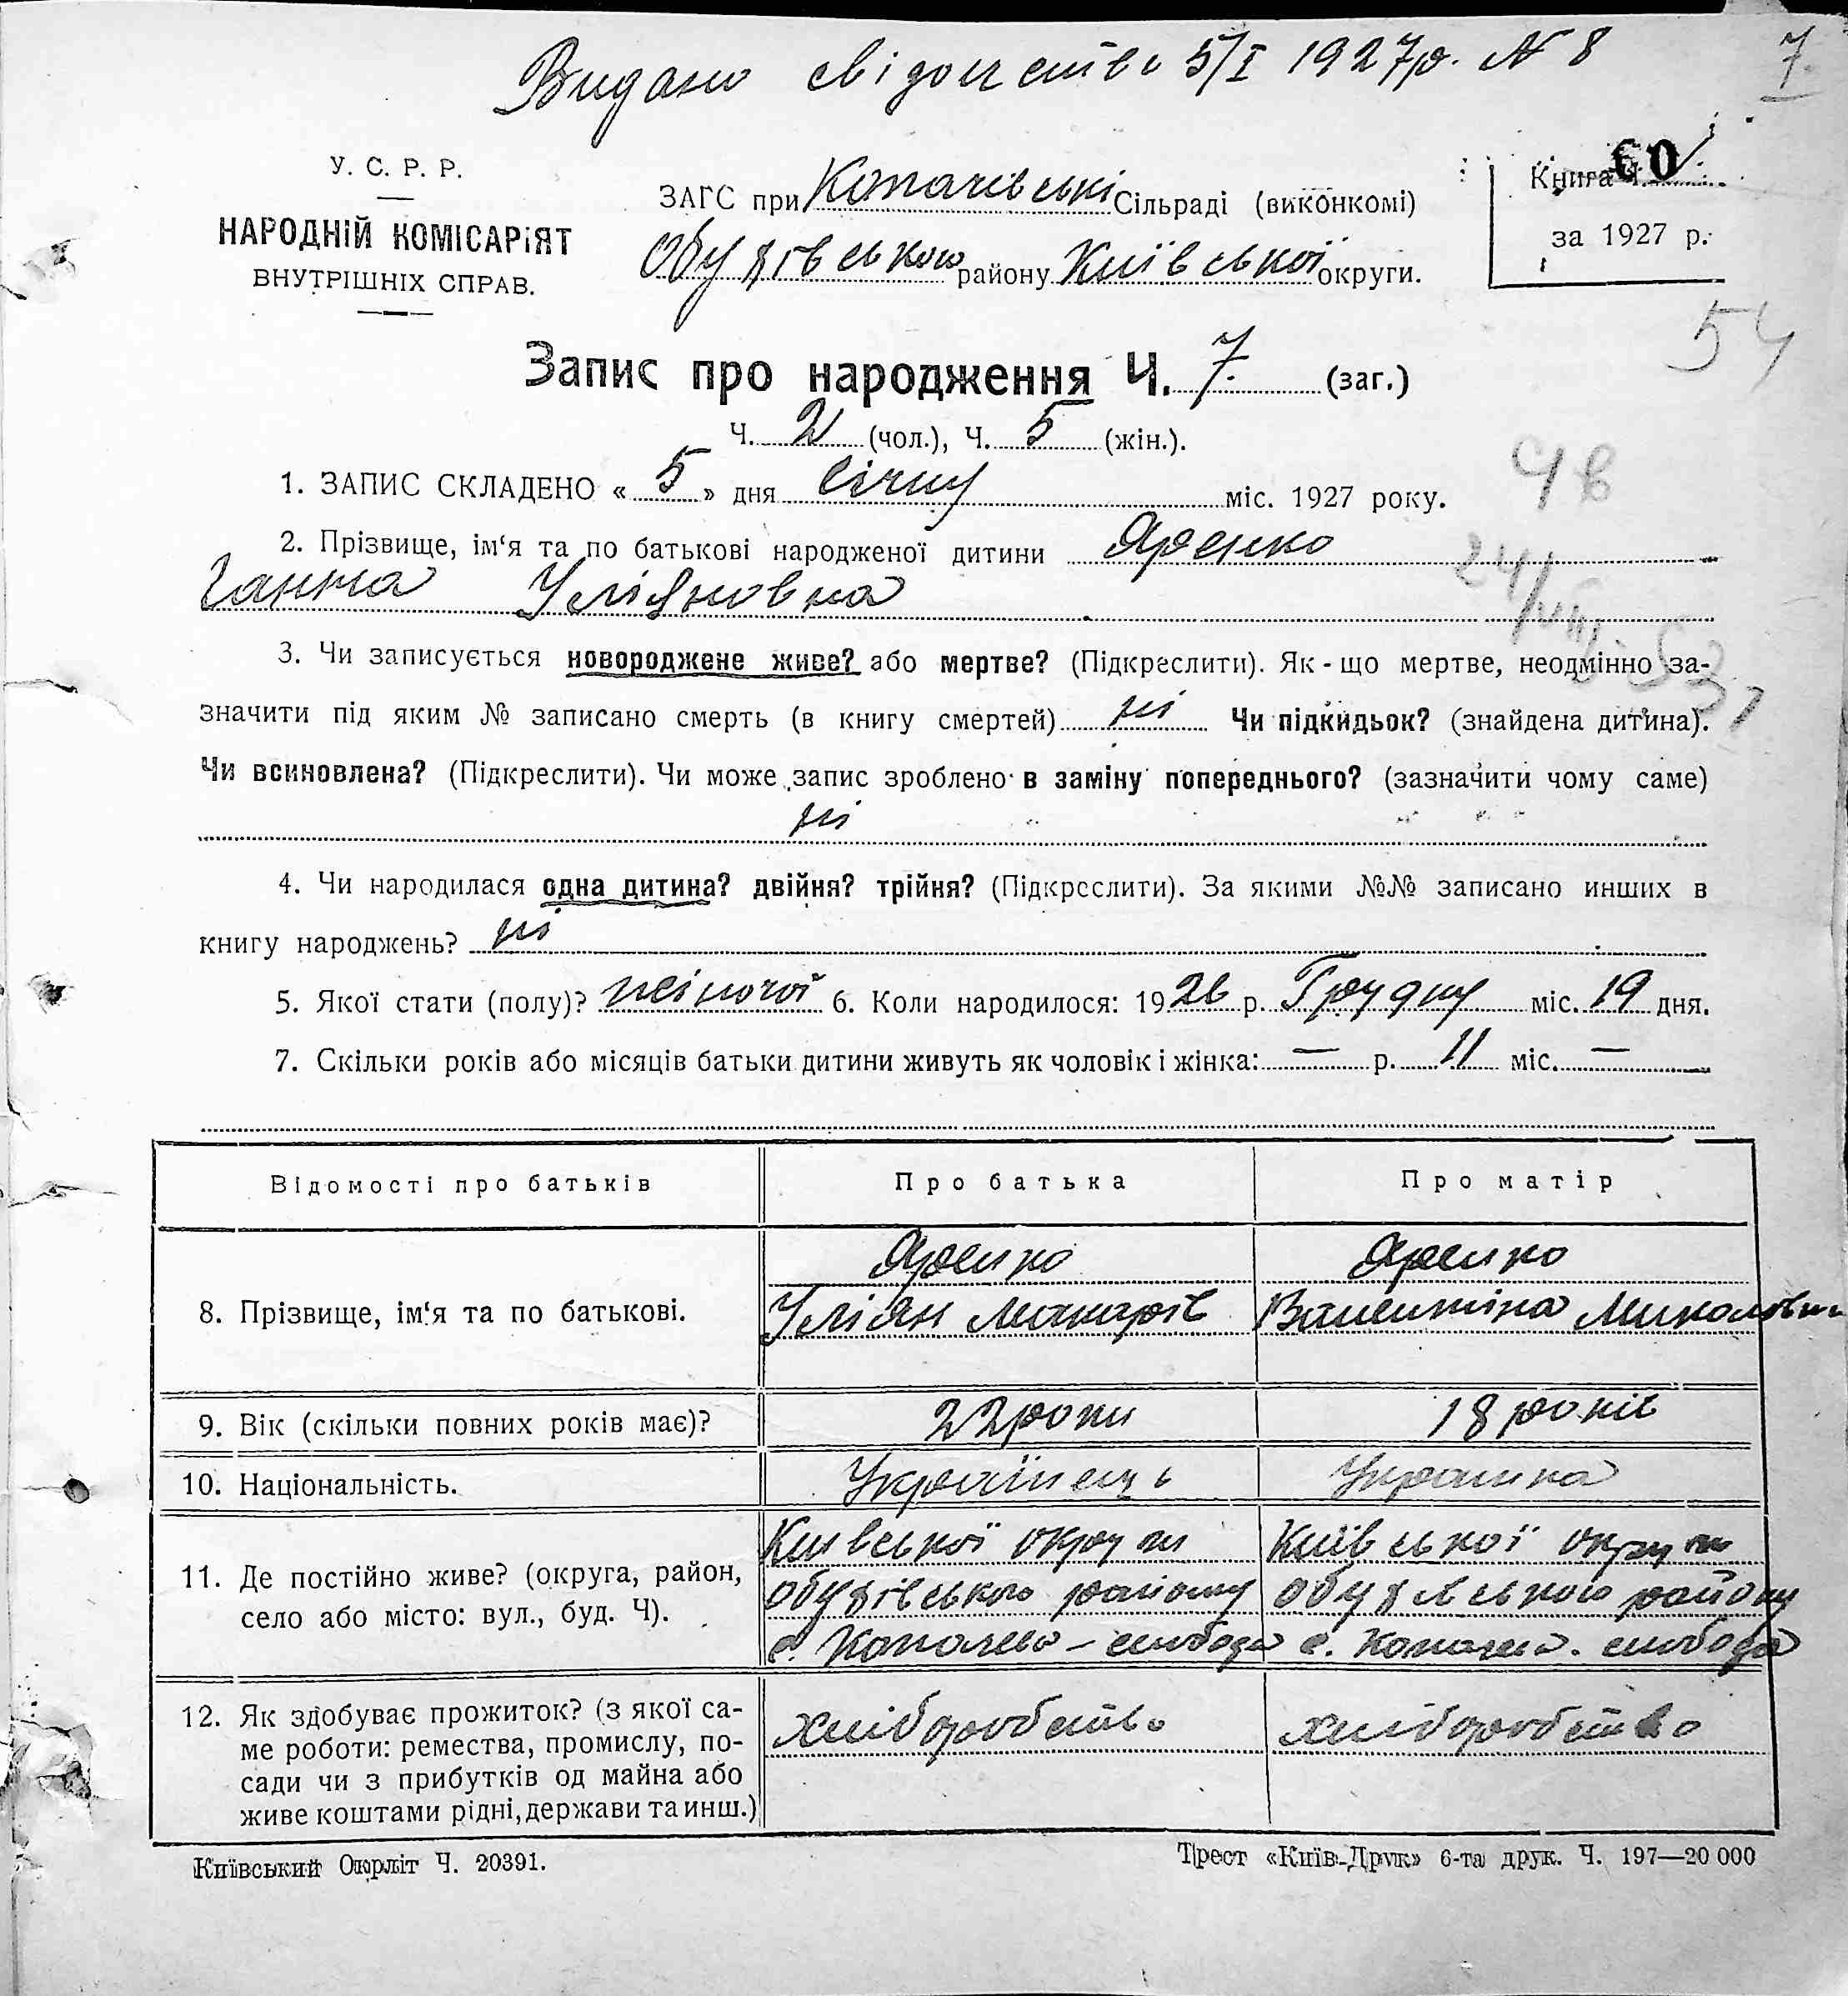 Видано свідоцтво 5/I 1927р. № 8
7.
У. С. Р. Р.
НАРОДНІЙ КОМІСАРІЯТ
ВНУТРІШНІХ СПРАВ.
ЗАГС при Копачівські Сільраді (виконкомі)
Обухівського району Київської округи.
Книга Ч.
60
за 1927 р.
54
Запис про народження Ч. 7. (заг.)
Ч. 2 (чол.), Ч. 5 (жін.).
1. ЗАПИС СКЛАДЕНО « 5 » дня Січня міс. 1927 року.
2. Прізвище, ім‘я та по батькові народженої дитини Яренко
Ганна Уліяновна
24/VIII-53
3. Чи записується новороджене живе? або мертве? (Підкреслити). Як-що мертве, неодмінно за-
значити під яким № записано смерть (в книгу смертей) ні Чи підкидьок? (знайдена дитина).
Чи всиновлена? (Підкреслити). Чи може запис зроблено в заміну попереднього? (зазначити чому саме)
ні
4. Чи народилася одна дитина? двійня? трійня? (Підкреслити). За якими №№ записано инших в
книгу народжень? ні
5. Якої стати (полу)? жіночої 6. Коли народилося: 1926 р. Грудня міс. 19 дня.
7. Скільки років або місяців батьки дитини живуть як чоловік і жінка: — р. 11 міс. —
Відомості про батьків Про батька Про матір
8. Прізвище, ім‘я та по батькові.
Яренко
Уліян Макарів
Яренко
Валентіна Миколовна
9. Вік (скільки повних років має)? 22 роки 18 років
10. Національність. Українець Украинка
11. Де постійно живе? (округа, район,
село або місто: вул., буд. Ч).
Київської округи
Обухівського району
с. Копачево – слобода
Київської округи
Обухівського району
с. Копачев. слобода
12. Як здобуває прожиток? (з якої са-
ме роботи: ремества, промислу, по-
сади чи з прибутків од майна або
живе коштами рідні, держави та инш.)
хліборобство
хліборобство
Київський Окрліт Ч. 20391.
Трест «Київ-Друк» 6-та друк. Ч. 197—20 000